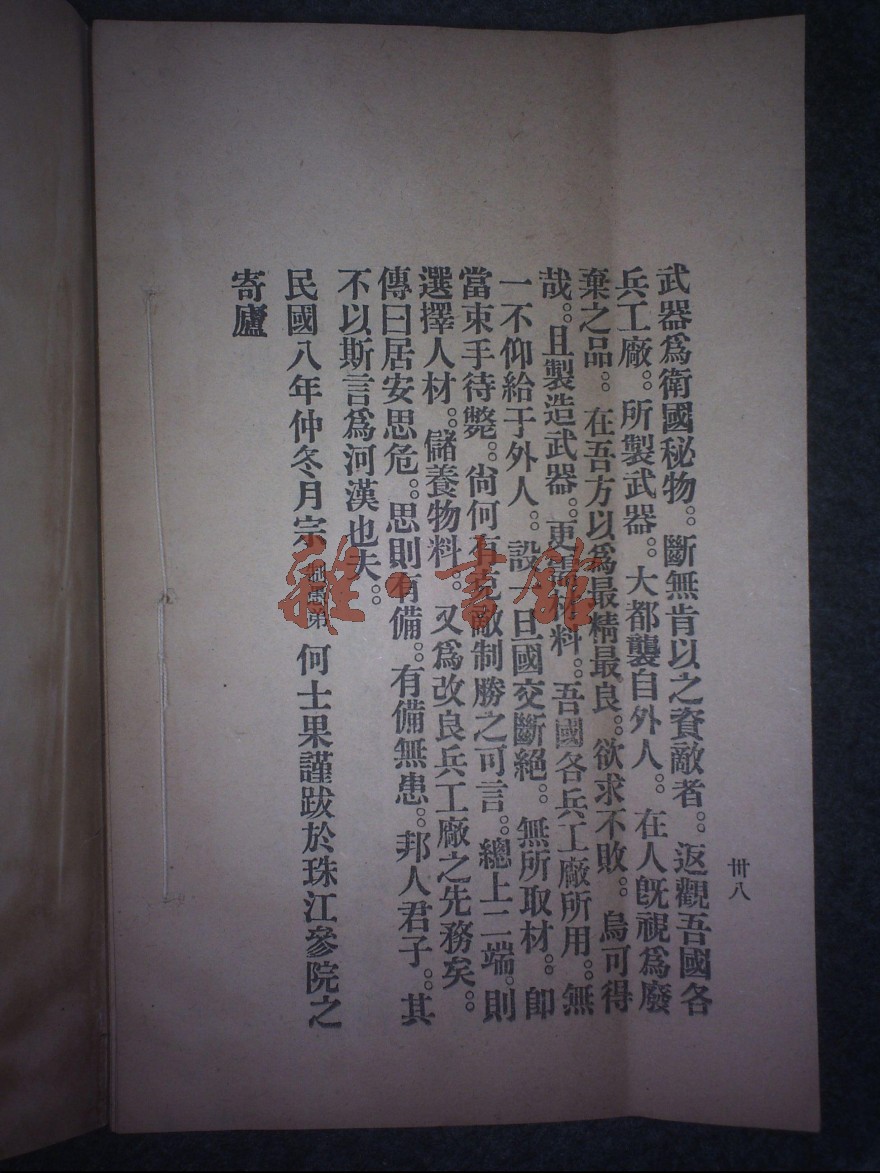 武器爲衛國秘物。斷無肯以之資敵者。返觀吾國各
兵工廠。所製武器。大都襲自外人。在人旣視爲廢
棄之品。在吾方以爲最精最良。欲求不敗。烏可得
哉。且製造武器。更需材料。吾國各兵工廠所用。無
一不仰給于外人。設一旦國交斷絕。無所取材。卽
當束手待斃。尙何有克敵制勝之可言。總上二端。則
選擇人材。儲養物料。又爲改良兵工廠之先務矣。
傳曰居安思危。思則有備。有備無患。邦人君子。其
不以斯言爲河漢也夫。
民國八年仲冬月宗愚弟何士果謹跋於珠江參院之
寄廬
卅八
雜·書館